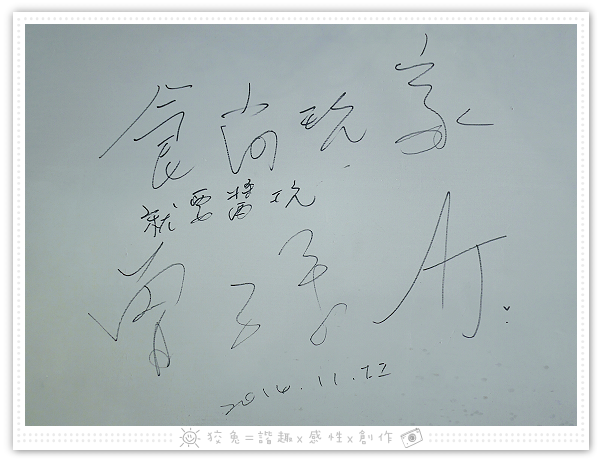 食尚玩家
就要醬玩
曾子余 AJ
2014.11.22
狡兔=諧趣x感性x創作